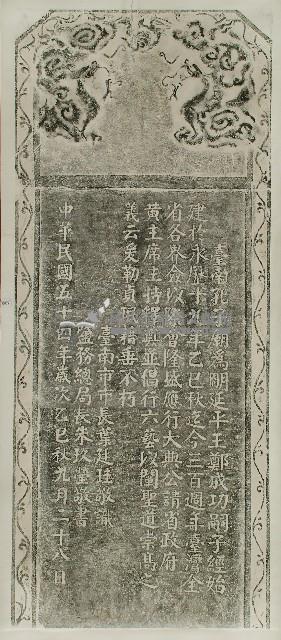 臺南孔子廟為明延平王鄭成功嗣子經始
建於永曆十九年乙巳秋迄今三百週年臺灣全
省各界僉以 智隆 應行大典公請省政府
黃主席主持釋奠並倡行六藝以闡聖道崇高之
義云爰勒貞珉藉垂不朽
臺南市市長葉廷珪敬識
鹽務總局長朱玖瑩敬書
中華民國五十四年歲次乙巳秋九月二十八日